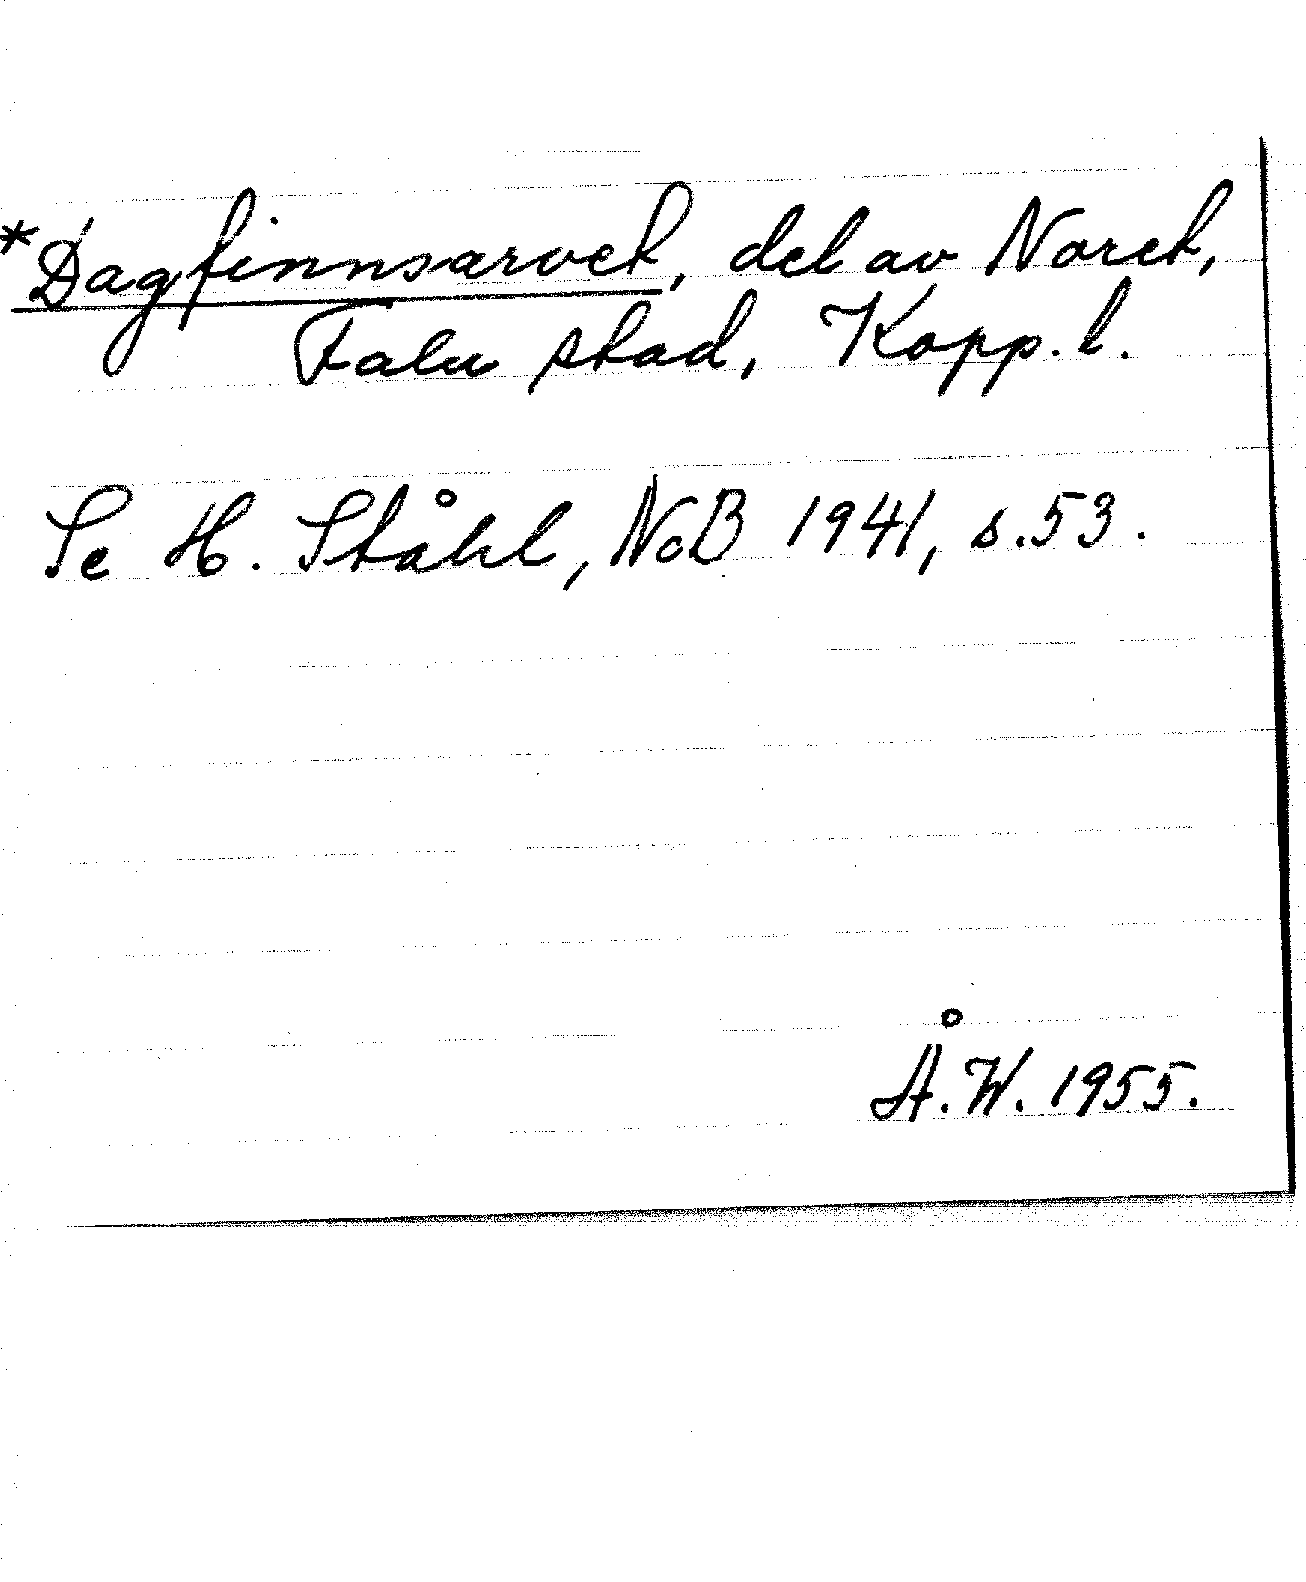 *Dagfinnsarvet, del av Noret,
Falu stad, Kopp. l.
Se H. Ståhl, NoB 1941, s. 53.
Å. W. 1955.